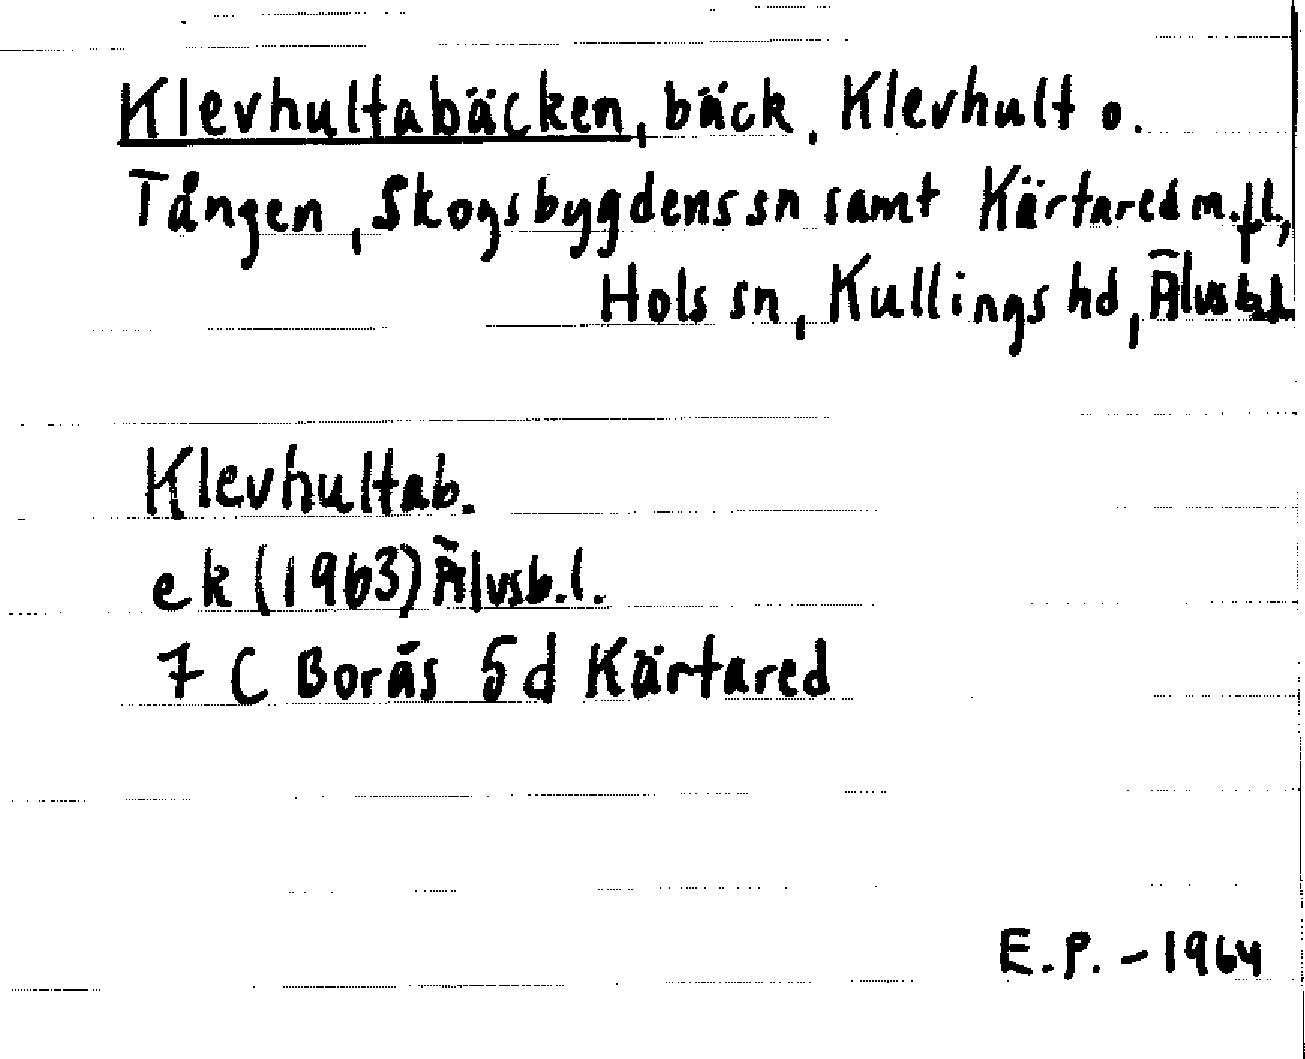 Klevhultabäcken, bäck, Klevhult o.
Tången, Skogsbygdens sn samt Kärtared m.fl.,
Hols sn, Kullings hd, Älvsb.l.
Klevhultab.
ek (1963) Älvsb.l.
7 C Borås 5d Kärtared
E.P. - 1964